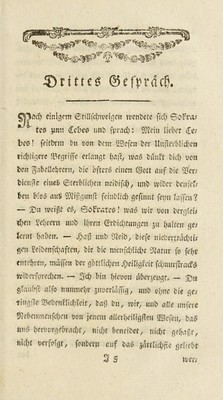 Drittes Gespräch.
Nach einigem Stillschweigen wendete sich Sokra-
tes zum Cebes und sprach: Mein lieber Ce-
bes! seitdem du von dem Wesen der Unsterblichen
richtigere Begriffe erlangt hast, was dünkt dich von
den Fabellehrern, die öfters einen Gott auf die Ver-
dienste eines Sterblichen neidisch, und wider densel-
ben blos aus Mißgunst feindlich gesinnt seyn lassen?
— Du weißt es, Sokrates! was wir von dergleis
chen Lehrern und ihren Erdichtungen zu halten ge-
lernt haben. — Haß und Neid, diese niederträchti-
gen Leidenschaften, die die menschliche Natur so sehr
entehren, müssen der göttlichen Heiligkeit schnurstracks
widersprechen. — Ich bin hievon überzeugt. — Du
glaubst also nunmehr zuverläßig, und ohne die ge-
ringste Bedenklichkeit, daß du, wir, und alle unsere
Nebenmenschen von jenem allerheiligsten Wesen, das
uns hervorgebracht, nicht beneidet, nicht gehaßt,
nicht verfolgt, sondern auf das zärtlichste geliebt
J 5
wer-